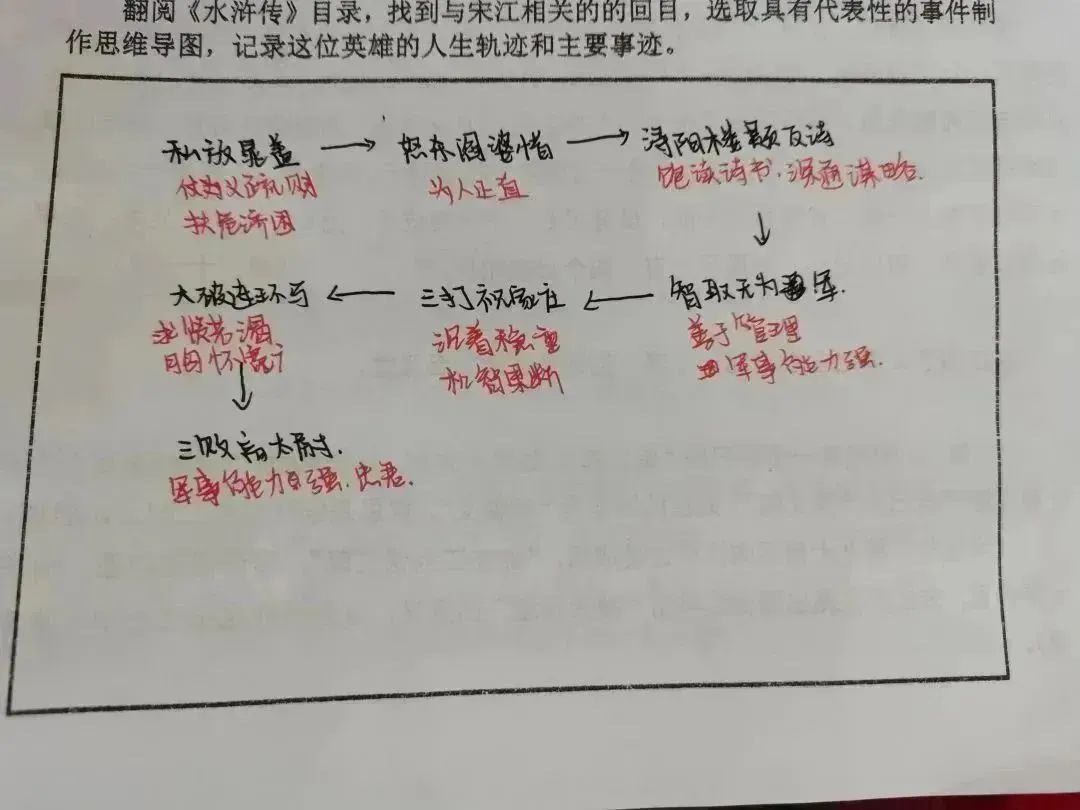 翻阅《水浒传》目录，找到与宋江相关的的回目，选取具有代表性的事件制
作思维导图，记录这位英雄的人生轨迹和主要事迹。
私放晁盖 → 怒杀阎婆惜 → 浔阳楼题反诗
仗义疏财
扶危济困
为人正直
饱读诗书.深通谋略.
↓
大破连环马 ← 三打祝家庄 ← 智取无为军.
求贤若渴
胸怀宽广
沉着稳重
机智果断
善于管理
军事能力强.
↓
三败高太尉.
军事能力强.忠君.